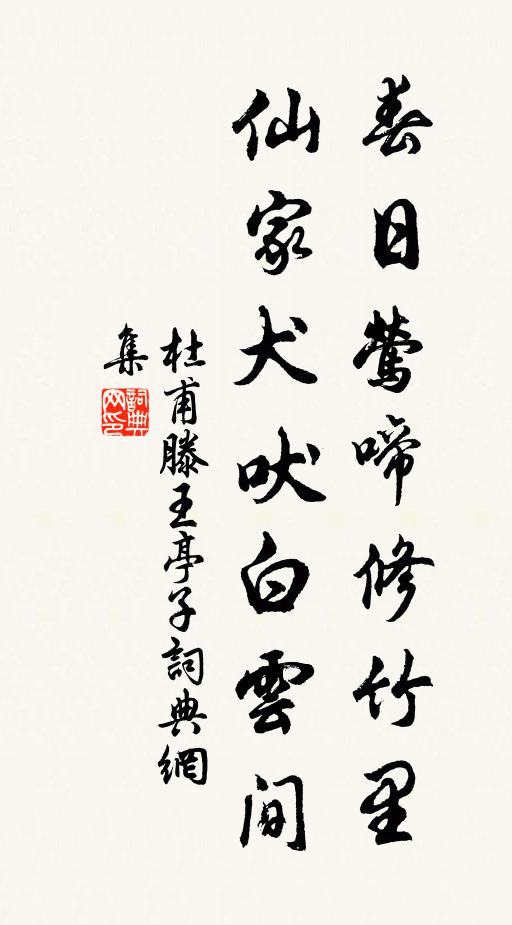 春日鶯啼修竹里
仙家犬吠白雲間
杜甫滕王亭子詞典網
集
詞典
网印